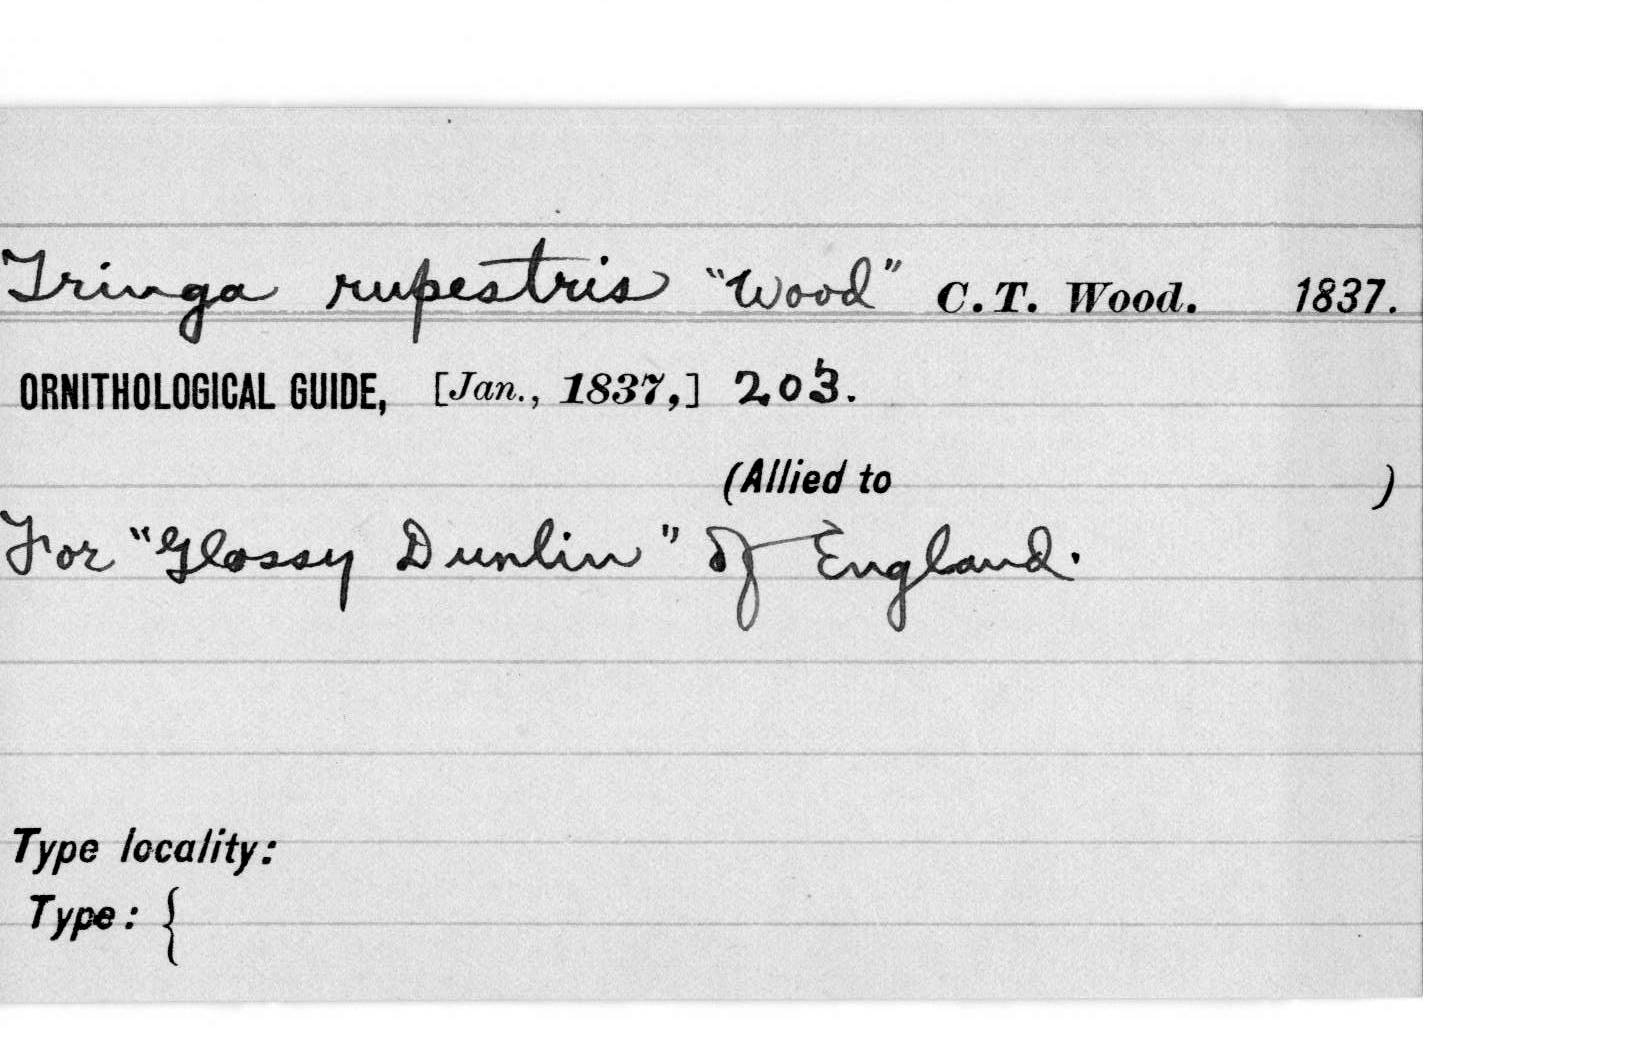 Tringa rupestris "Wood" C.T. Wood. 1837.
ORNITHOLOGICAL GUIDE, [Jan., 1837,] 203.
(Allied to )
For "Glossy Dunlin" of England.
Type locality:
Type: {